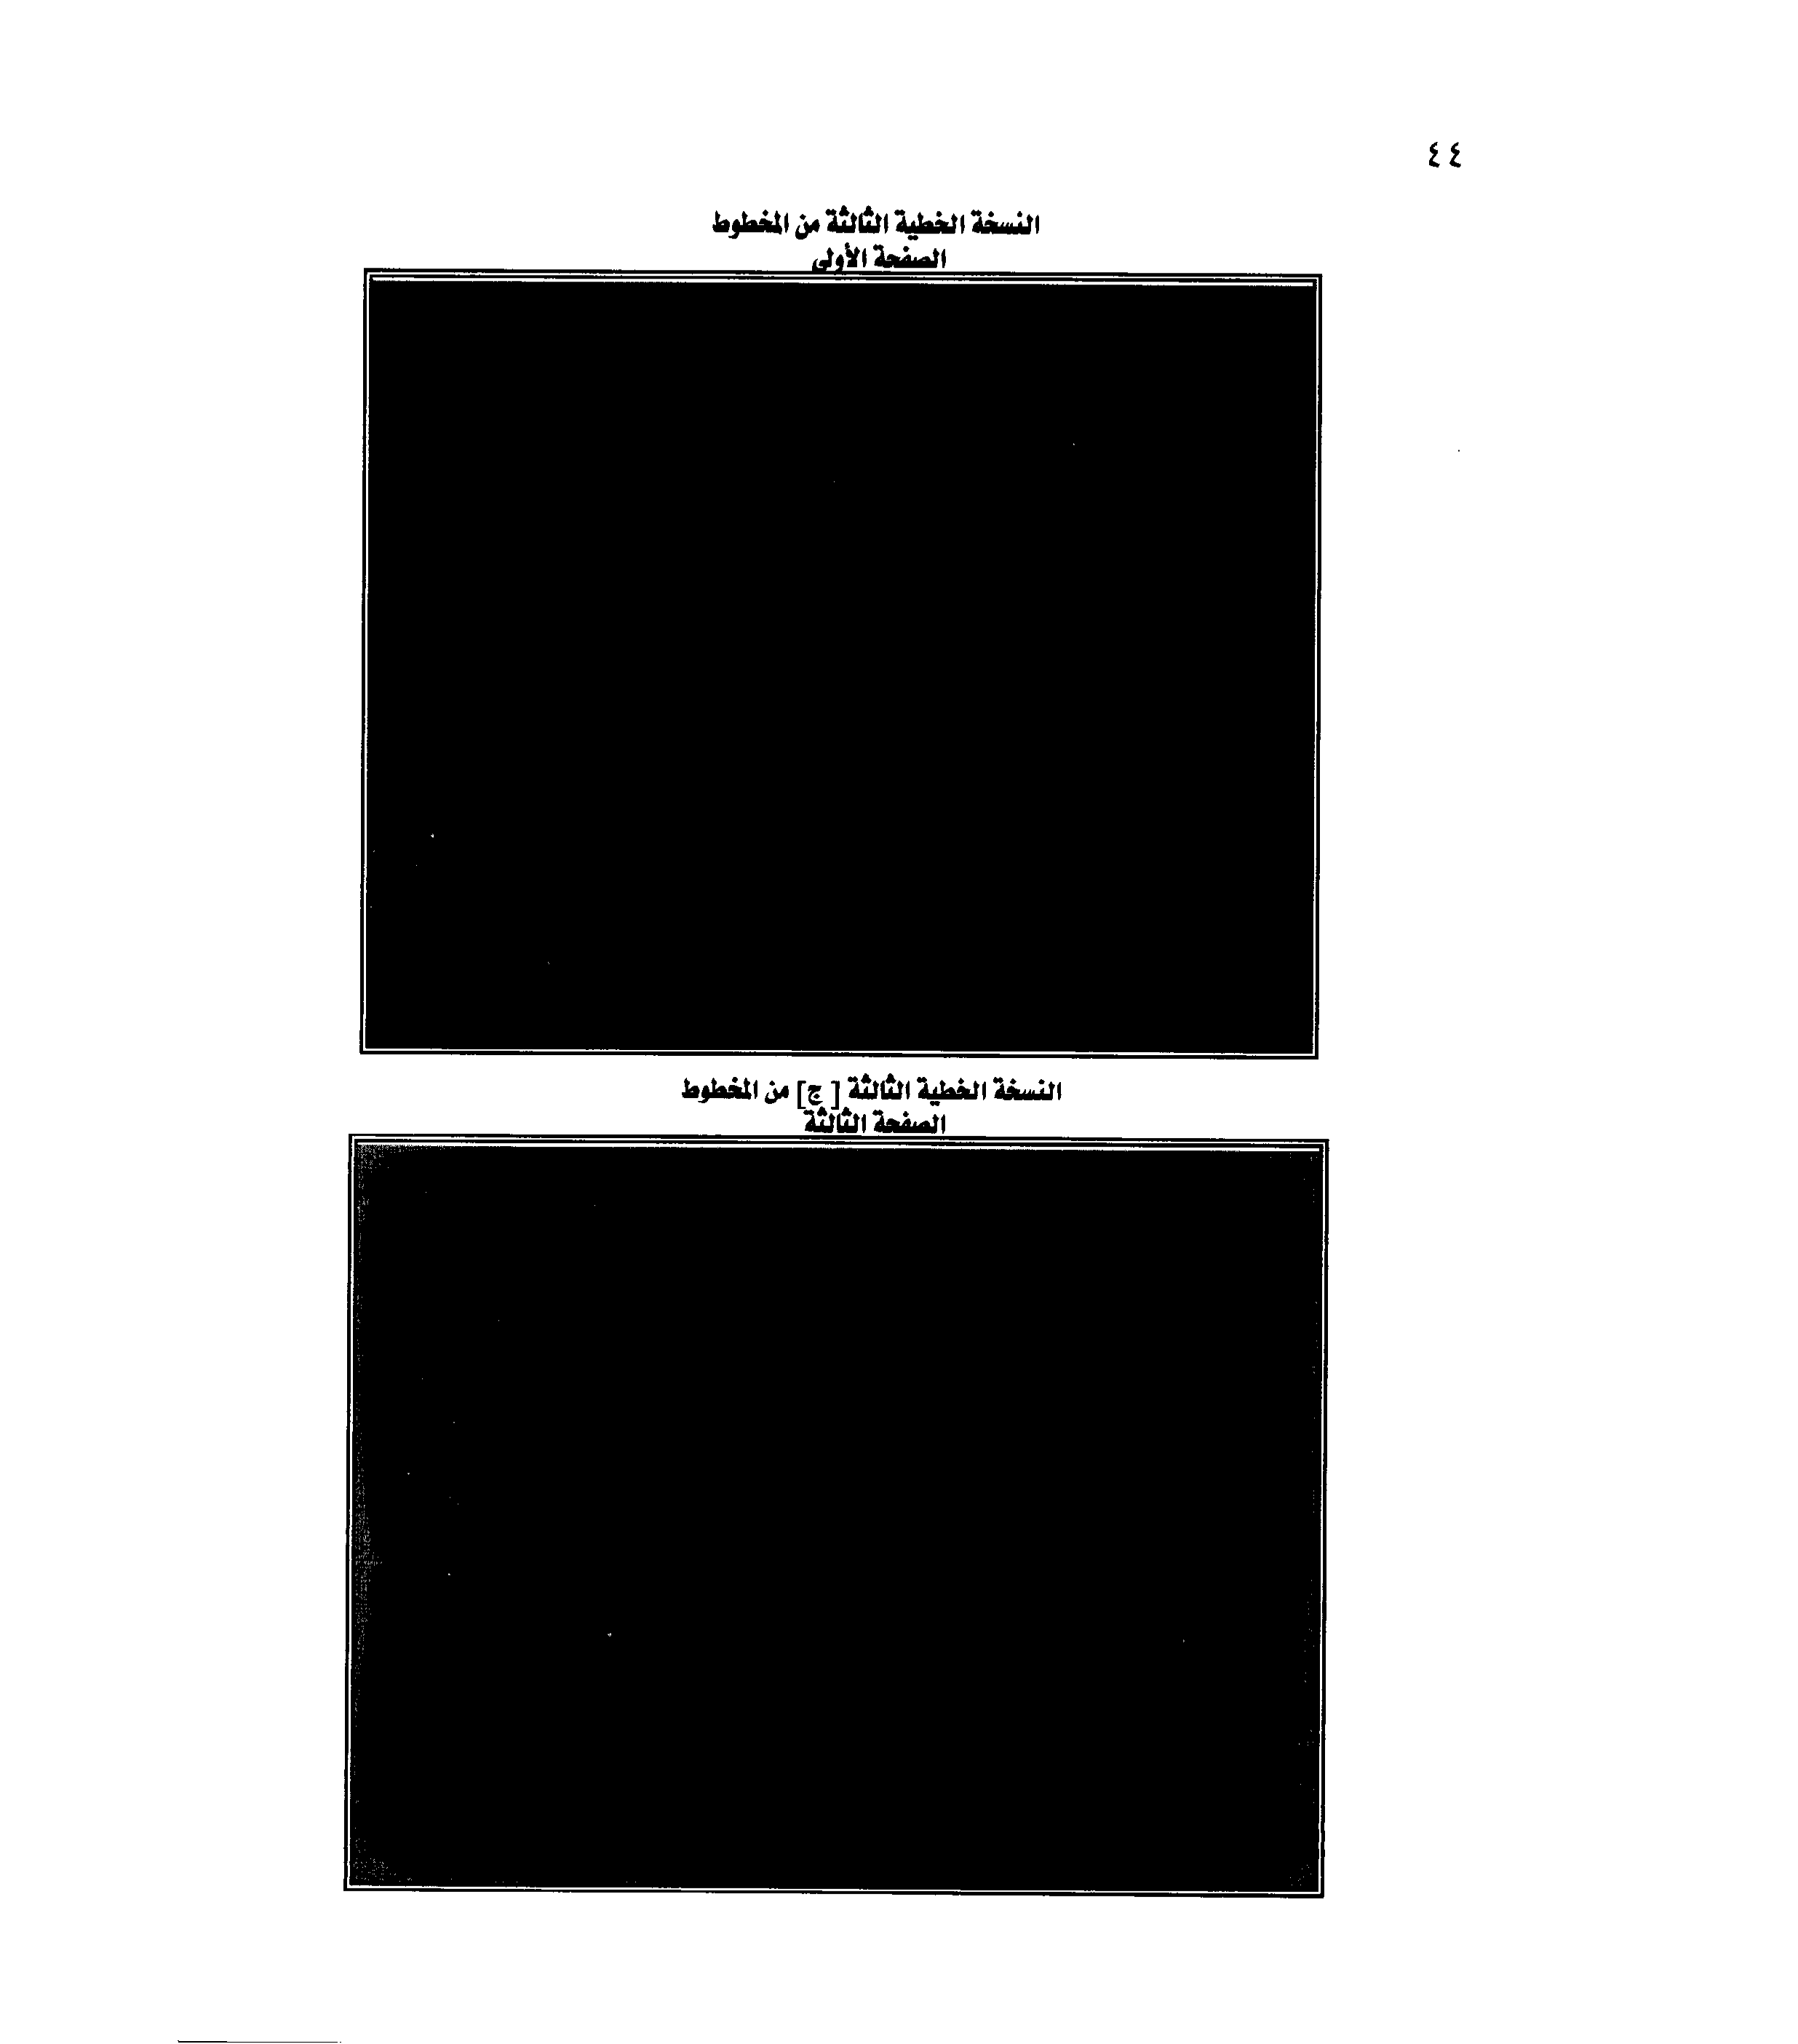 ٤٤
النسخة الخطية الثالثة من المخطوط
الصفحة الأولى
النسخة الخطية الثالثة [ ج] من المخطوط
الصفحة الثالثة